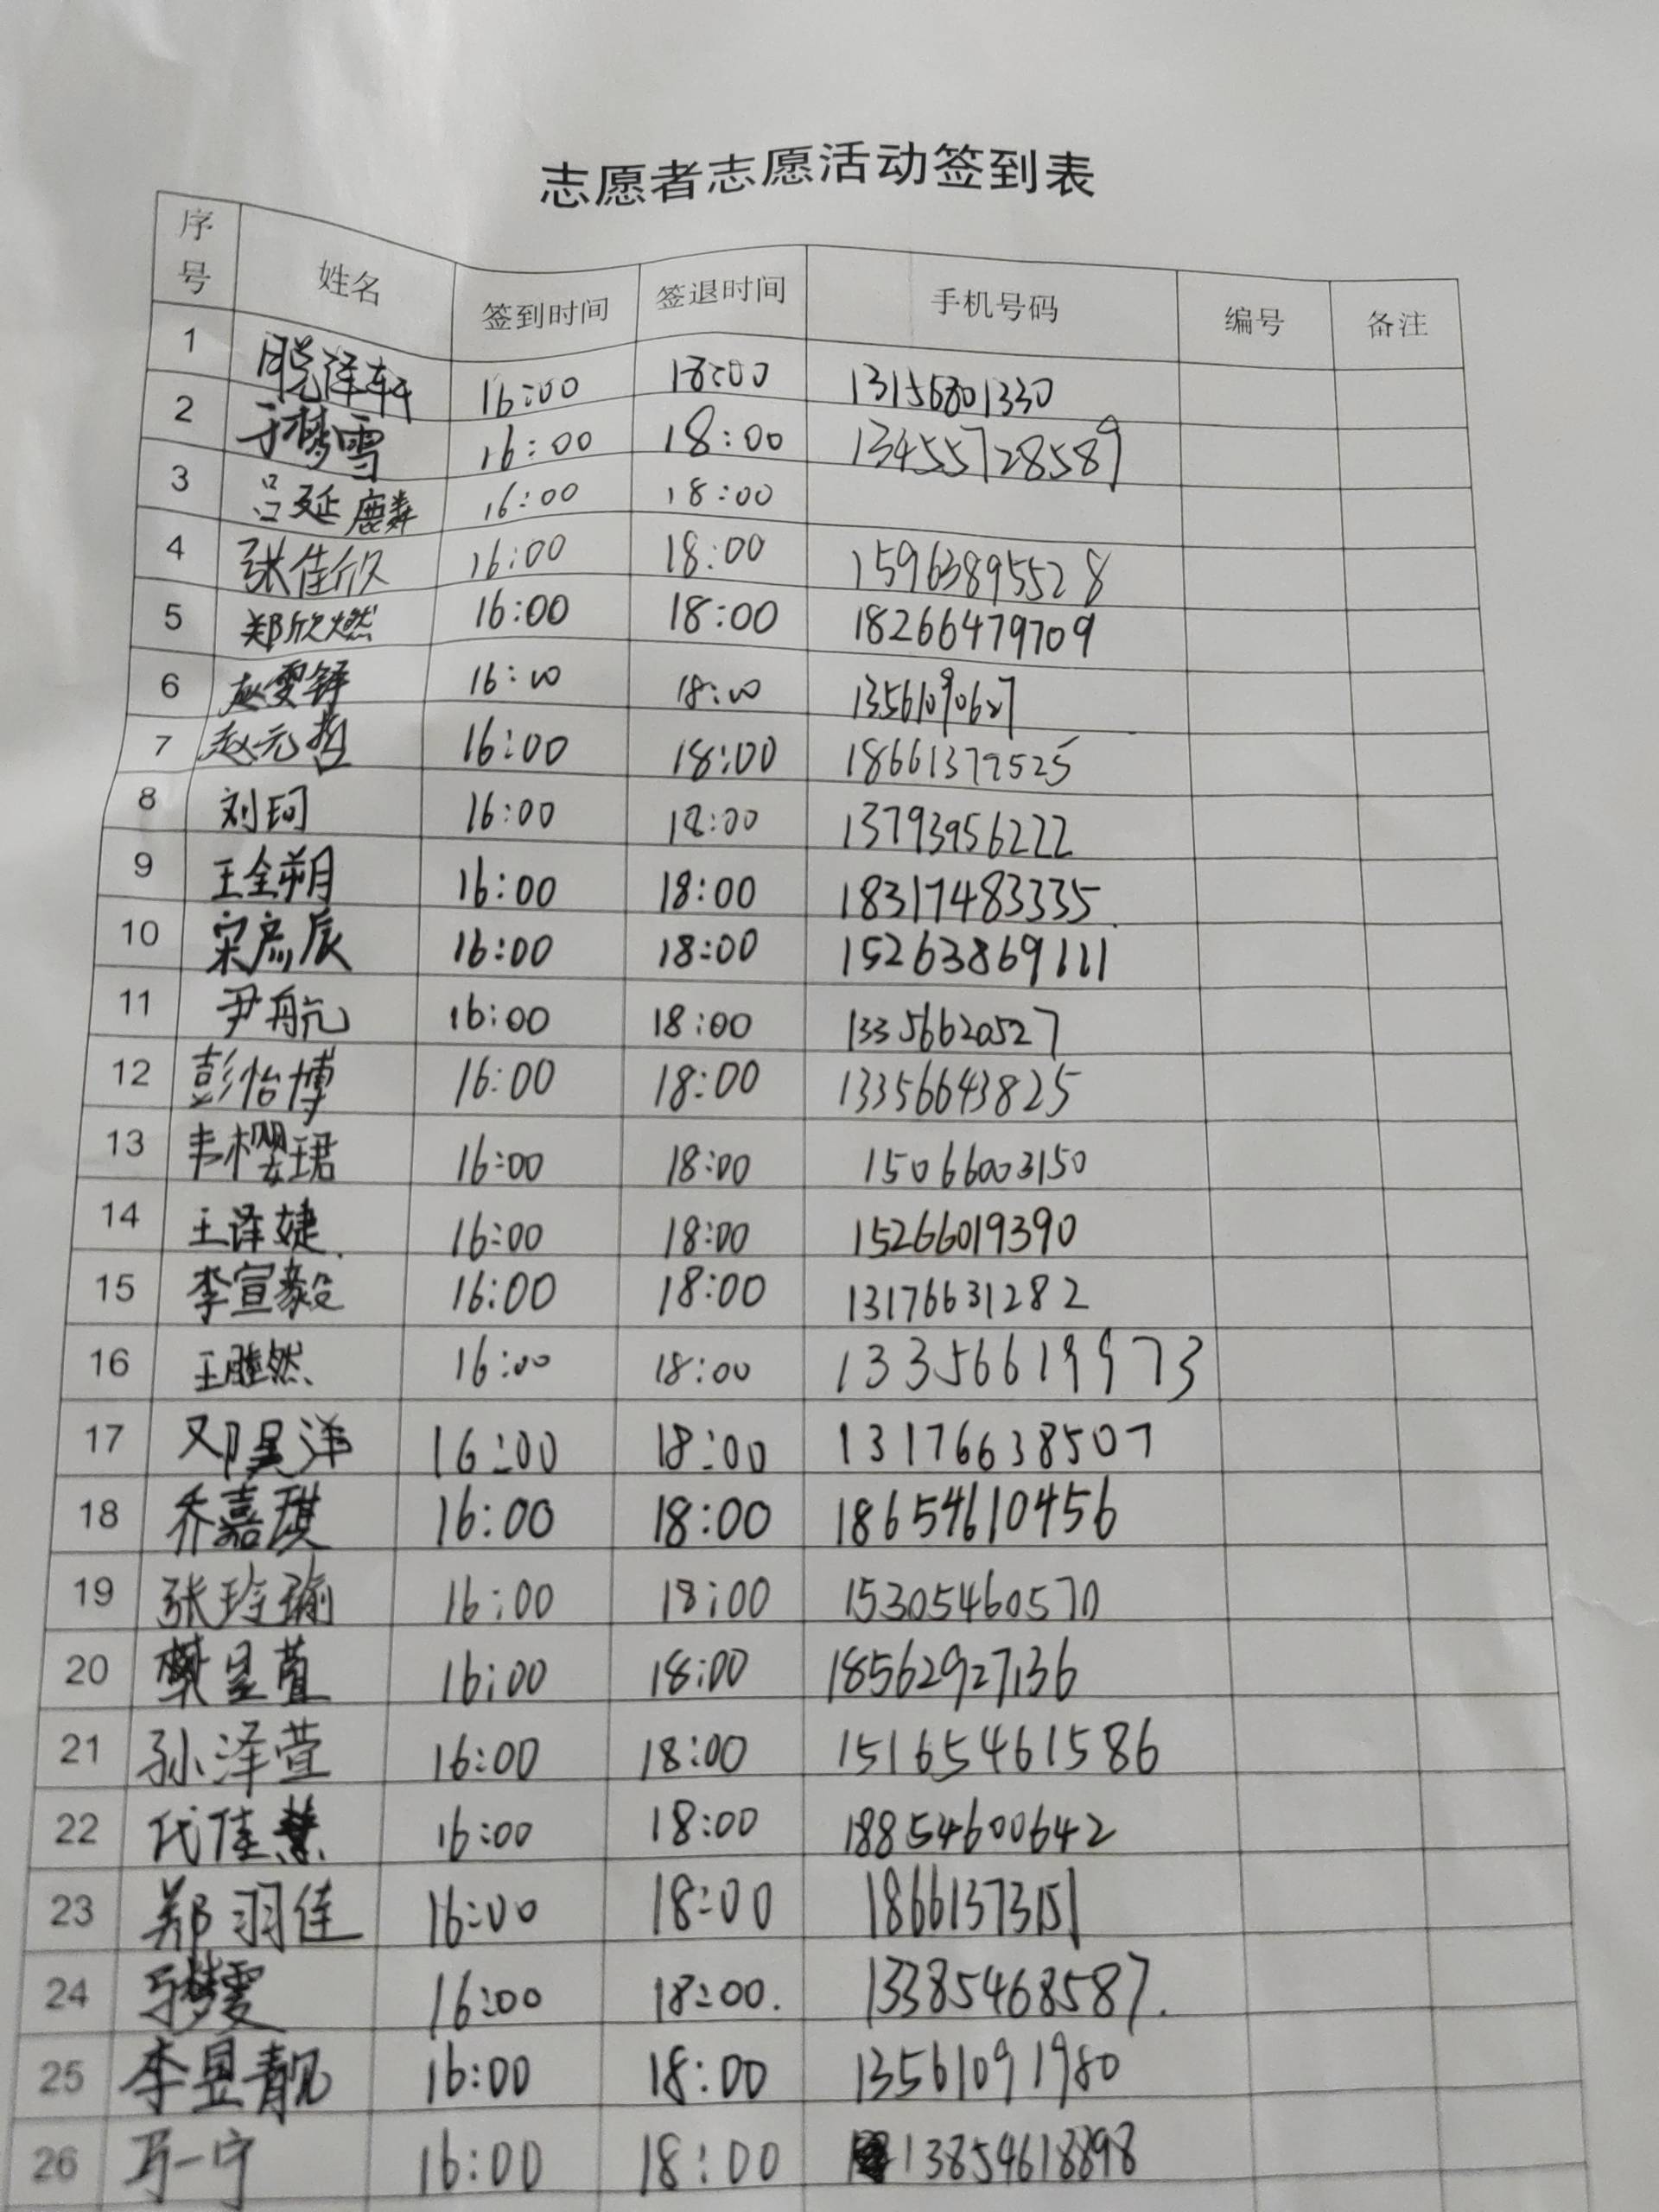 志愿者志愿活动签到表
序号 姓名 签到时间 签退时间 手机号码 编号 备注
1 脱泽轩 16:00 18:00 13156801330
2 于梦雪 16:00 18:00 13455728589
3 吕延麟 16:00 18:00
4 张佳欣 16:00 18:00 15963895528
5 郑欣燃 16:00 18:00 18266479709
6 赵雯铎 16:00 18:00 13561090627
7 赵元哲 16:00 18:00 18661379525
8 刘珂 16:00 18:00 13793956222
9 王全朔 16:00 18:00 18317483335
10 宋庶辰 16:00 18:00 15263869111
11 尹航 16:00 18:00 13356620527
12 彭怡博 16:00 18:00 13356643825
13 韦樱珺 16:00 18:00 15066003150
14 王译婕 16:00 18:00 15266019390
15 李宣毅 16:00 18:00 13176631282
16 王胜然 16:00 18:00 13356619973
17 邓昊洋 16:00 18:00 13176638507
18 乔嘉琪 16:00 18:00 18654610456
19 张玲瑜 16:00 18:00 15305460570
20 樊昱萱 16:00 18:00 18562927136
21 孙泽萱 16:00 18:00 15165461586
22 代佳慧 16:00 18:00 18854600642
23 郑羽佳 16:00 18:00 18661373151
24 16:00 18:00. 13385468587.
25 李昱靓 16:00 18:00 13561091980
26 万一宁 16:00 18:00 13854618898